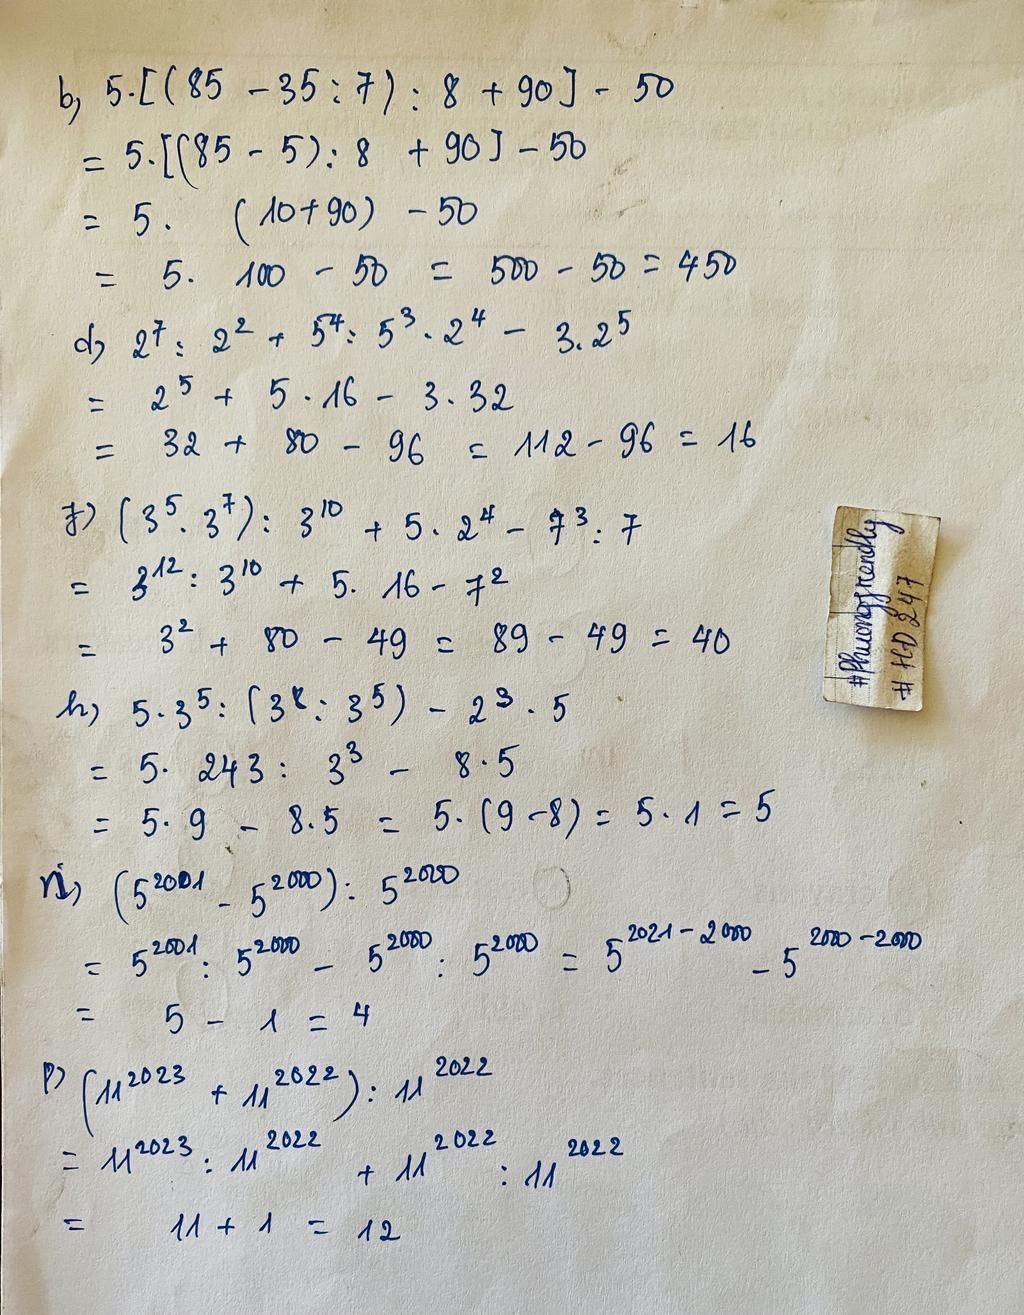 b) 5.[(85 - 35 : 7) : 8 + 90] - 50
= 5.[(85 - 5) : 8 + 90] - 50
= 5. (10 + 90) - 50
= 5. 100 - 50 = 500 - 50 = 450
d) 2⁷ : 2² + 5⁴ : 5³ . 2⁴ - 3. 2⁵
= 2⁵ + 5 . 16 - 3. 32
= 32 + 80 - 96 = 112 - 96 = 16
f) (3⁵. 3⁷) : 3¹⁰ + 5. 2⁴ - 7³ : 7
= 3¹² : 3¹⁰ + 5. 16 - 7²
= 3² + 80 - 49 = 89 - 49 = 40
h) 5. 3⁵ : (3⁸ : 3⁵) - 2³ . 5
= 5. 243 : 3³ - 8.5
= 5. 9 - 8.5 = 5. (9 - 8) = 5. 1 = 5
n) (5²⁰⁰¹ - 5²⁰⁰⁰) : 5²⁰⁰⁰
= 5²⁰⁰¹ : 5²⁰⁰⁰ - 5²⁰⁰⁰ : 5²⁰⁰⁰ = 5²⁰²¹⁻²⁰⁰⁰ - 5²⁰⁰⁰⁻²⁰⁰⁰
= 5 - 1 = 4
p) (11²⁰²³ + 11²⁰²²) : 11²⁰²²
= 11²⁰²³ : 11²⁰²² + 11²⁰²² : 11²⁰²²
= 11 + 1 = 12
#Phuongfriendly
# HD 247